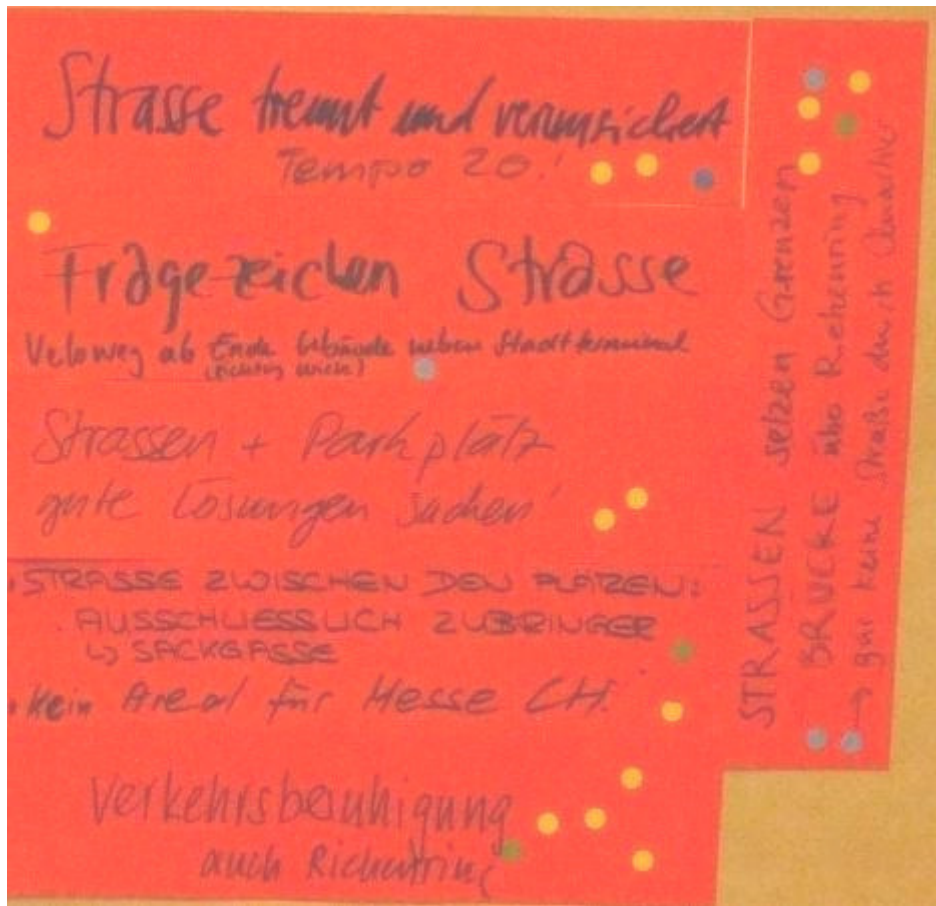 Strasse trennt und verunsichert
Tempo 20!
Fragezeichen Strasse
Veloweg ab Ende Gebäude neben Stadtterminal
Strassen + Parkplätz
gute Lösungen suchen!
STRASSE ZWISCHEN DEN PLÄTZEN:
AUSSCHLIESSLICH ZUBRINGER
↳ SACKGASSE
• Kein Areal für Messe CH.
Verkehrsberuhigung
auch Richtring
STRASSEN setzen Grenzen
BRÜCKE über Rehenring
→ gar keine Straße durch Quartier